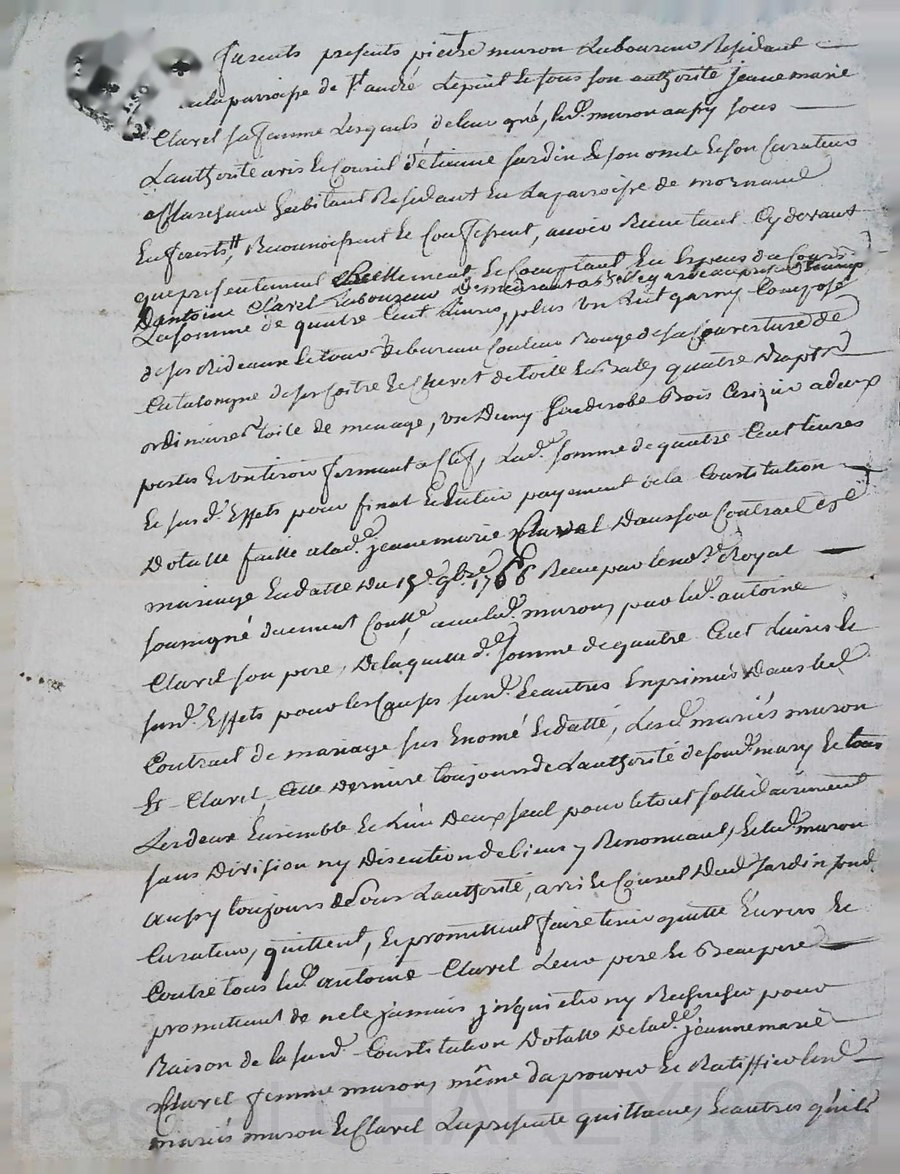 furents presents pierre muron Laboureur Residant
en la parroisse de St andré Lepuit et sous son authorité jeanne marie
Clavel sa femme Lesquels de leur gré, led. muron aussy sous
L'authorité avis et Conseil d'étienne Jardin et son oncle et son Curateur
Habitant Residant en La parroisse de mornand
en forests, Reconnoissent et Confessent, avoir Reçu tant Cy devant
que presentement Reellement et Comptant en Espece du Cours
D'antoine Clavel Laboureur Demeurant
La somme de quatre Cent Livres, plus un Lict garny Composé
de ses Rideaux et tour de bureau Couleur Rouge de sa Couverture de
Catalongne de son Coitre et Chevet de toile quatre Draps
ordinaires toile de menage, un Demy garderobe Bois Cerizier a deux
portes et un tiroir fermant a Clef, Lad. somme de quatre Cent Livres
et susd. Effets pour final et Entier payement de la Constitution
Dotalle faitte a lad. jeanne marie Clavel Dans son Contract de
mariage En datte Du 15e 9bre 1766 Reçu par le no.re Royal
soussigné duement Conllé, aud. muron, par led. antoine
Clavel son pere, De laquelle d. somme de quatre Cent Livres et
susd. Effets pour les Causes susd. et autres Exprimés Dans led.
Contract de mariage sus Enomé et datté, Lesd. mariés muron
et Clavel, Cette Derniere toujours de L'authorité de sond. mary et tous
Les deux Ensemble et L'un Deux seul pour le tout sollidairement
sans Division ny Discution de biens y Renoncant, et led. muron
aussy toujours de sous L'authorité, avis et Conseil Dud. Jardin sond.
Curateur, quittent, et promettent faire tenir quitte Envers et
Contre tous led. antoine Clavel Leur pere et Beaupere
promettant de ne le jamais jnquietter ny Rechercher pour
Raison de la susd. Constitution Dotalle De lad. jeanne marie
Clavel femme muron, même d'aprouver et Ratiffier lesd.
mariés muron et Clavel La presente quittance, et autres